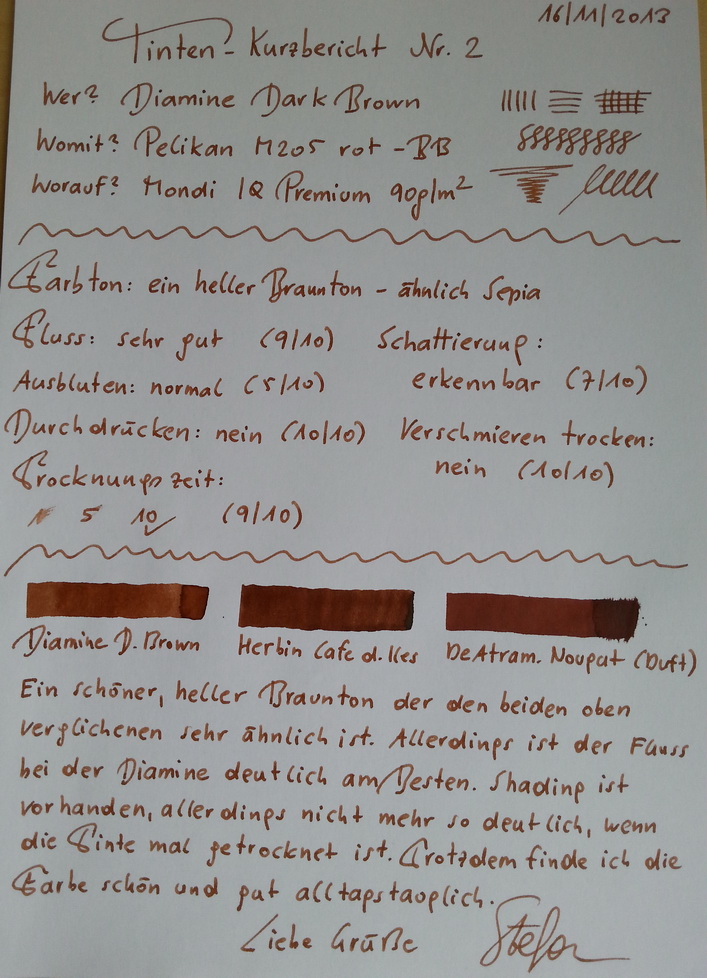 16/11/2013
Tinten-Kurzbericht Nr. 2
Wer? Diamine Dark Brown
Womit? Pelikan M205 rot - BB
Worauf? Mondi IQ Premium 90g/m²
Farbton: ein heller Braunton - ähnlich Sepia
Fluss: sehr gut (9/10) Schattierung:
Ausbluten: normal (5/10) erkennbar (7/10)
Durchdrücken: nein (10/10) Verschmieren trocken:
Trocknungszeit: nein (10/10)
5 10 ✓ (9/10)
Diamine D. Brown Herbin Cafe d. Iles DeAtram. Nougat (Duft)
Ein schöner, heller Braunton der den beiden oben
verglichenen sehr ähnlich ist. Allerdings ist der Fluss
bei der Diamine deutlich am Besten. Shading ist
vorhanden, allerdings nicht mehr so deutlich, wenn
die Tinte mal getrocknet ist. Trotzdem finde ich die
Farbe schön und gut alltagstauglich.
Liebe Grüße Stefan